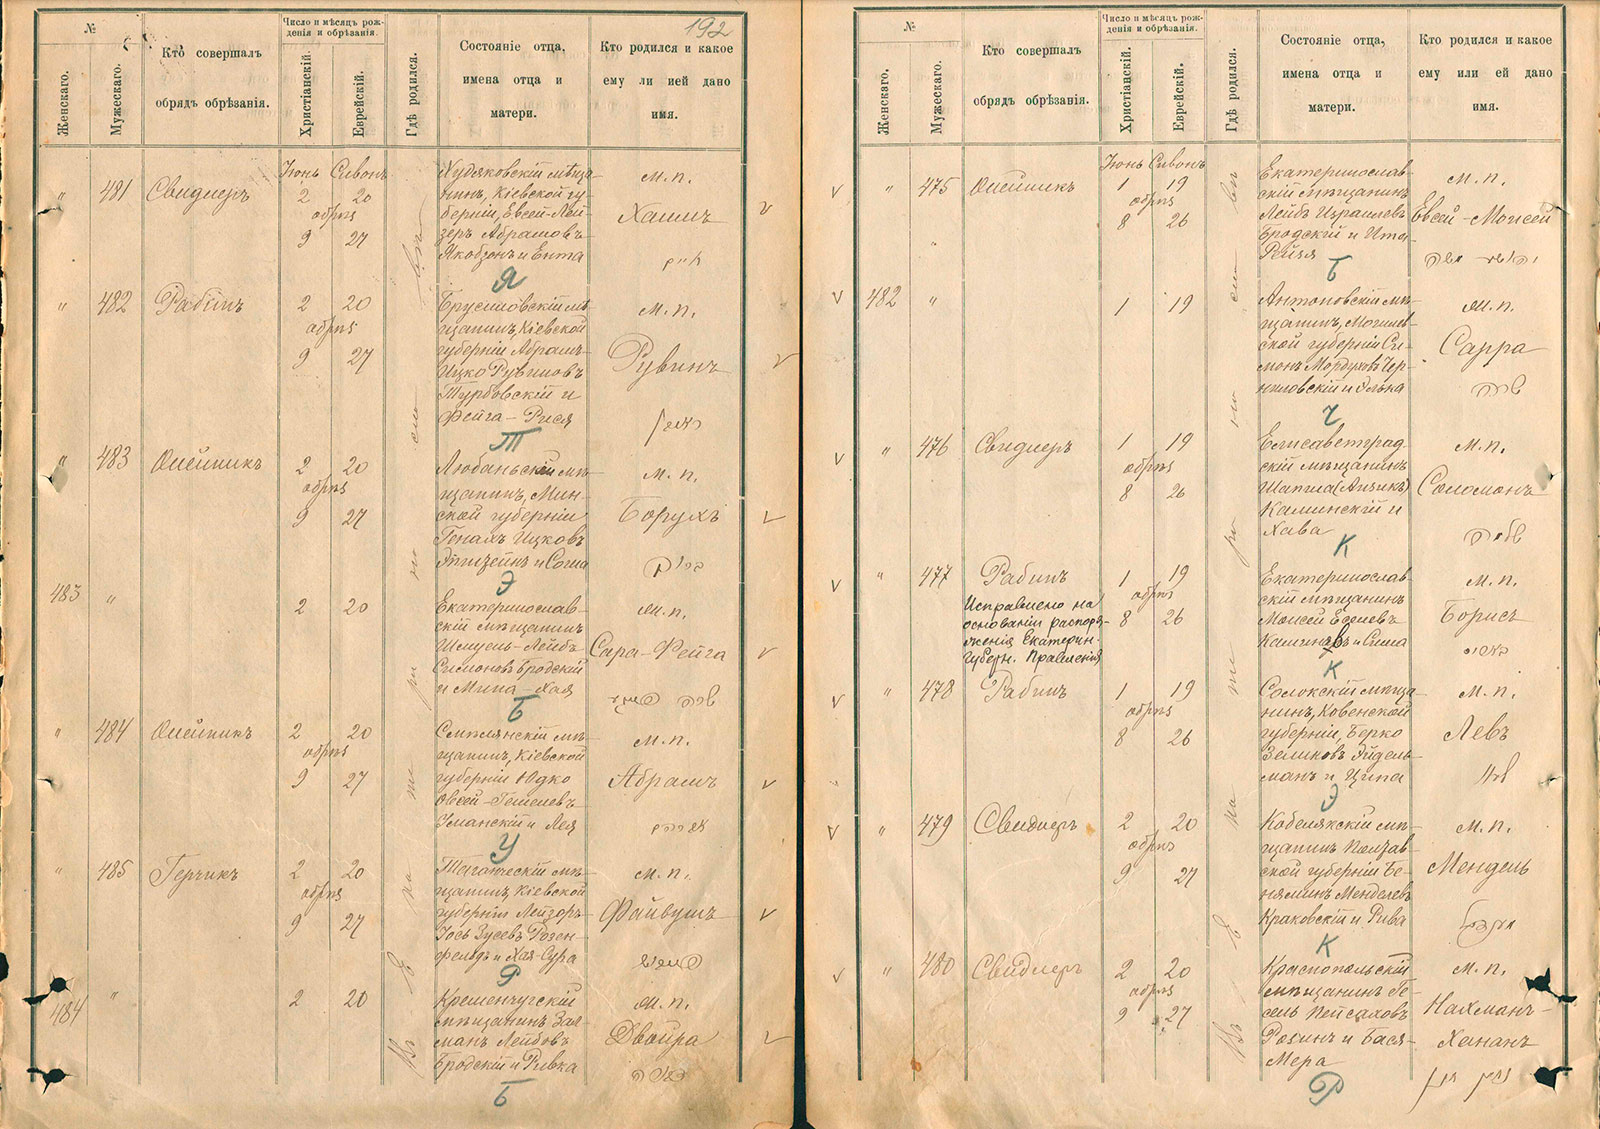 192
№
Женскаго.
Мужескаго.
Кто совершалъ
обрядъ обрѣзанія.
Число и мѣсяцъ рож-
денія и обрѣзанія.
Христіанскій.
Еврейскій.
Гдѣ родился.
Состояніе отца,
имена отца и
матери.
Кто родился и какое
ему ли ией дано
имя.
Іюнь Сивонъ
" 481 Свидлеръ 2 20
обрѣз
9 27
Худяковскій мѣща-
нинъ, Кіевской гу-
берніи, Евсей-Лей-
зеръ Абрамовъ
Якобзонъ и Ента
Я
м. п.
Хаимъ
חיים
" 482 Рабинъ 2 20
обрѣз
9 27
Брусиловскій мѣ-
щанинъ, Кіевской
губерніи Абрамъ-
Ицко Рувиновъ
Турбовскій и
Фейга-Рися
Т
м. п.
Рувинъ
ראובן
" 483 Олейникъ 2 20
обрѣз
9 27
Любаньскій мѣ-
щанинъ, Мин-
ской губерніи
Генахъ Ицковъ
и Сома
Э
м. п.
Борухъ
ברוך
483 " 2 20
Екатеринослав-
скій мѣщанинъ
Шмуель-Лейбъ
Симоновъ Бродскій
и Мина-Хая
Б
м. п.
Сара-Фейга
שרה פייגע
" 484 Олейникъ 2 20
обрѣз
9 27
Смѣлянскій мѣ-
щанинъ, Кіевской
губерніи Юдко
Овсей-Гешелевъ
Уманскій и Лея
У
м. п.
Абрамъ
אברהם
" 485 Герчикъ 2 20
обрѣз
9 27
Таганческій мѣ-
щанинъ, Кіевской
губерніи Лейзоръ-
Іось Зусевъ Розен-
фельдъ и Хая-Сура
Р
м. п.
Файвушъ
פייוויש
484 " 2 20
Кременчугскій
мѣщанинъ Зал-
манъ Лейбовъ
Бродскій и Ривка
Б
м. п.
Двойра
דבורה
Въ Е ка те ри но сла въ
№
Женскаго.
Мужескаго.
Кто совершалъ
обрядъ обрѣзанія.
Число и мѣсяцъ рож-
денія и обрѣзанія.
Христіанскій.
Еврейскій.
Гдѣ родился.
Состояніе отца,
имена отца и
матери.
Кто родился и какое
ему или ей дано
имя.
Іюнь Сивонъ
" 475 Олейникъ 1 19
обрѣз
8 26
Екатеринослав-
скій мѣщанинъ
Лейбъ Израилевъ
Бродскій и Ита-
Рейзя
Б
м. п.
Евсей-Моисей
יהושע משה
482 " 1 19
Антоновскій мѣ-
щанинъ, Могилев-
ской губерніи Си-
монъ Мордуховъ Чер-
ниловскій и Элька
Ч
м. п.
Сарра
שרה
" 476 Свидлеръ 1 19
обрѣз
8 26
Елисаветград-
скій мѣщанинъ
Шапса (Айзикъ)
Калинскій и
Хава
К
м. п.
Соломонъ
שלמה
" 477 Рабинъ 1 19
обрѣз
8 26
Исправлено на
основаніи распоря-
женія Екатерин.
Губерн. Правленія
Екатеринослав-
скій мѣщанинъ
Моисей Евсеевъ
и Сима
К
м. п.
Борисъ
" 478 Рабинъ 1 19
обрѣз
8 26
Солокскій мѣща-
нинъ, Ковенской
губерніи, Берко
Зеликовъ Эйдель-
манъ и Ципа
Э
м. п.
Левъ
לוי
" 479 Свидлеръ 2 20
обрѣз
9 27
Кобелякскій мѣ-
щанинъ Полтав-
ской губерніи Бе-
няминъ Менделевъ
Краковскій и Рива
К
м. п.
Мендель
מענדל
" 480 Свидлеръ 2 20
обрѣз
9 27
Краснопольскій
мѣщанинъ Ге-
сель Пейсаховъ
Розинъ и Бася-
Мера
Р
м. п.
Нахманъ-
Хананъ
נחמן חנן
Въ Е ка те ри но сла вѣ